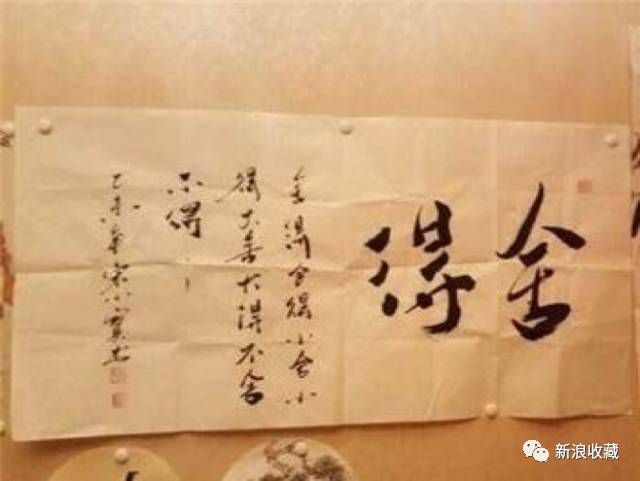 舍得
舍得舍得小舍小
得大舍大得不舍
不得
乙未年宋小宝书
新浪收藏